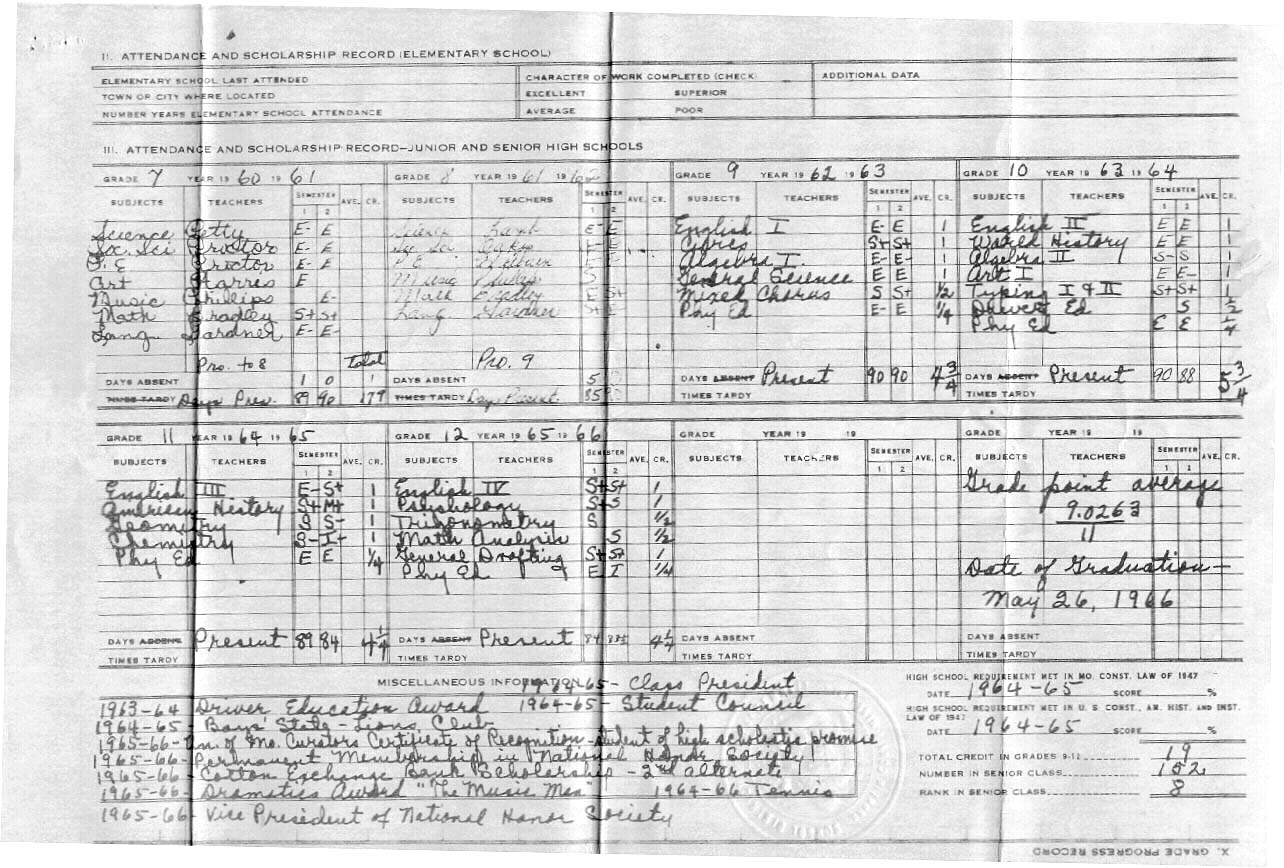 II. ATTENDANCE AND SCHOLARSHIP RECORD (ELEMENTARY SCHOOL)
ELEMENTARY SCHOOL LAST ATTENDED CHARACTER OF WORK COMPLETED (CHECK) ADDITIONAL DATA
TOWN OR CITY WHERE LOCATED EXCELLENT SUPERIOR
NUMBER YEARS ELEMENTARY SCHOOL ATTENDANCE AVERAGE POOR
III. ATTENDANCE AND SCHOLARSHIP RECORD—JUNIOR AND SENIOR HIGH SCHOOLS
GRADE 7 YEAR 19 60 19 61
SUBJECTS TEACHERS SEMESTER 1 2 AVE. CR.
Science Petty E- E
Soc. Sci Proctor E- E
P. E Proctor E- E
Art Starres E
Music Phillips E-
Math Bradley S+ S+
Lang. Gardner E- E-
Pro. to 8 Total
DAYS ABSENT 1 0 1
TIMES TARDY Days Pres. 89 90 179
GRADE 8 YEAR 19 61 19 62
SUBJECTS TEACHERS SEMESTER 1 2 AVE. CR.
Science
Soc Sci
P. E
Music
Math Bradley E S+
Lang. Gardner
Pro. 9
DAYS ABSENT 5
TIMES TARDY Days Present 85
GRADE 9 YEAR 19 62 19 63
SUBJECTS TEACHERS SEMESTER 1 2 AVE. CR.
English I E- E 1
Civics S+ S+ 1
Algebra I E- E- 1
General Science E E 1
Mixed Chorus S S+ 1/2
Phy Ed E- E 1/4
DAYS ABSENT Present 90 90 4 3/4
TIMES TARDY
GRADE 10 YEAR 19 63 19 64
SUBJECTS TEACHERS SEMESTER 1 2 AVE. CR.
English II E E 1
World History E E 1
Algebra II S- S 1
Art I E E- 1
Typing I & II S+ S+ 1
Drivers Ed S 1/2
Phy Ed E E 1/4
DAYS ABSENT Present 90 88 5 3/4
TIMES TARDY
GRADE 11 YEAR 19 64 19 65
SUBJECTS TEACHERS SEMESTER 1 2 AVE. CR.
English III E- S+ 1
American History S+ M+ 1
Geometry S S- 1
Chemistry S- I+ 1
Phy Ed E E 1/4
DAYS ABSENT Present 89 84 4 1/4
TIMES TARDY
GRADE 12 YEAR 19 65 19 66
SUBJECTS TEACHERS SEMESTER 1 2 AVE. CR.
English IV S+ S+ 1
Psychology S+ S 1
Trigonometry S 1/2
Math Analysis S 1/2
General Drafting S+ S+ 1
Phy Ed E I 1/4
DAYS ABSENT Present 84 4 1/4
TIMES TARDY
GRADE YEAR 19 19
SUBJECTS TEACHERS SEMESTER 1 2 AVE. CR.
DAYS ABSENT
TIMES TARDY
GRADE YEAR 19 19
SUBJECTS TEACHERS SEMESTER 1 2 AVE. CR.
Grade point average
9.0263
11
Date of Graduation—
May 26, 1966
DAYS ABSENT
TIMES TARDY
MISCELLANEOUS INFORMATION 1964-65 - Class President
1963-64 Driver Education Award 1964-65 - Student Council
1964-65 - Boys' State - Lions Club
1965-66 - Un. of Mo. Curators Certificate of Recognition - student of high scholastic promise
1965-66 - Permanent Membership in National Honor Society
1965-66 - Cotton Exchange Bank Scholarship - 2nd alternate
1965-66 - Dramatics Award "The Music Man" 1964-66 Tennis
1965-66 - Vice President of National Honor Society
HIGH SCHOOL REQUIREMENT MET IN MO. CONST. LAW OF 1947
DATE 1964-65 SCORE %
HIGH SCHOOL REQUIREMENT MET IN U. S CONST., AM. HIST. AND INST. LAW OF 1947
DATE 1964-65 SCORE %
TOTAL CREDIT IN GRADES 9-12 19
NUMBER IN SENIOR CLASS 152
RANK IN SENIOR CLASS 8
X. GRADE PROGRESS RECORD